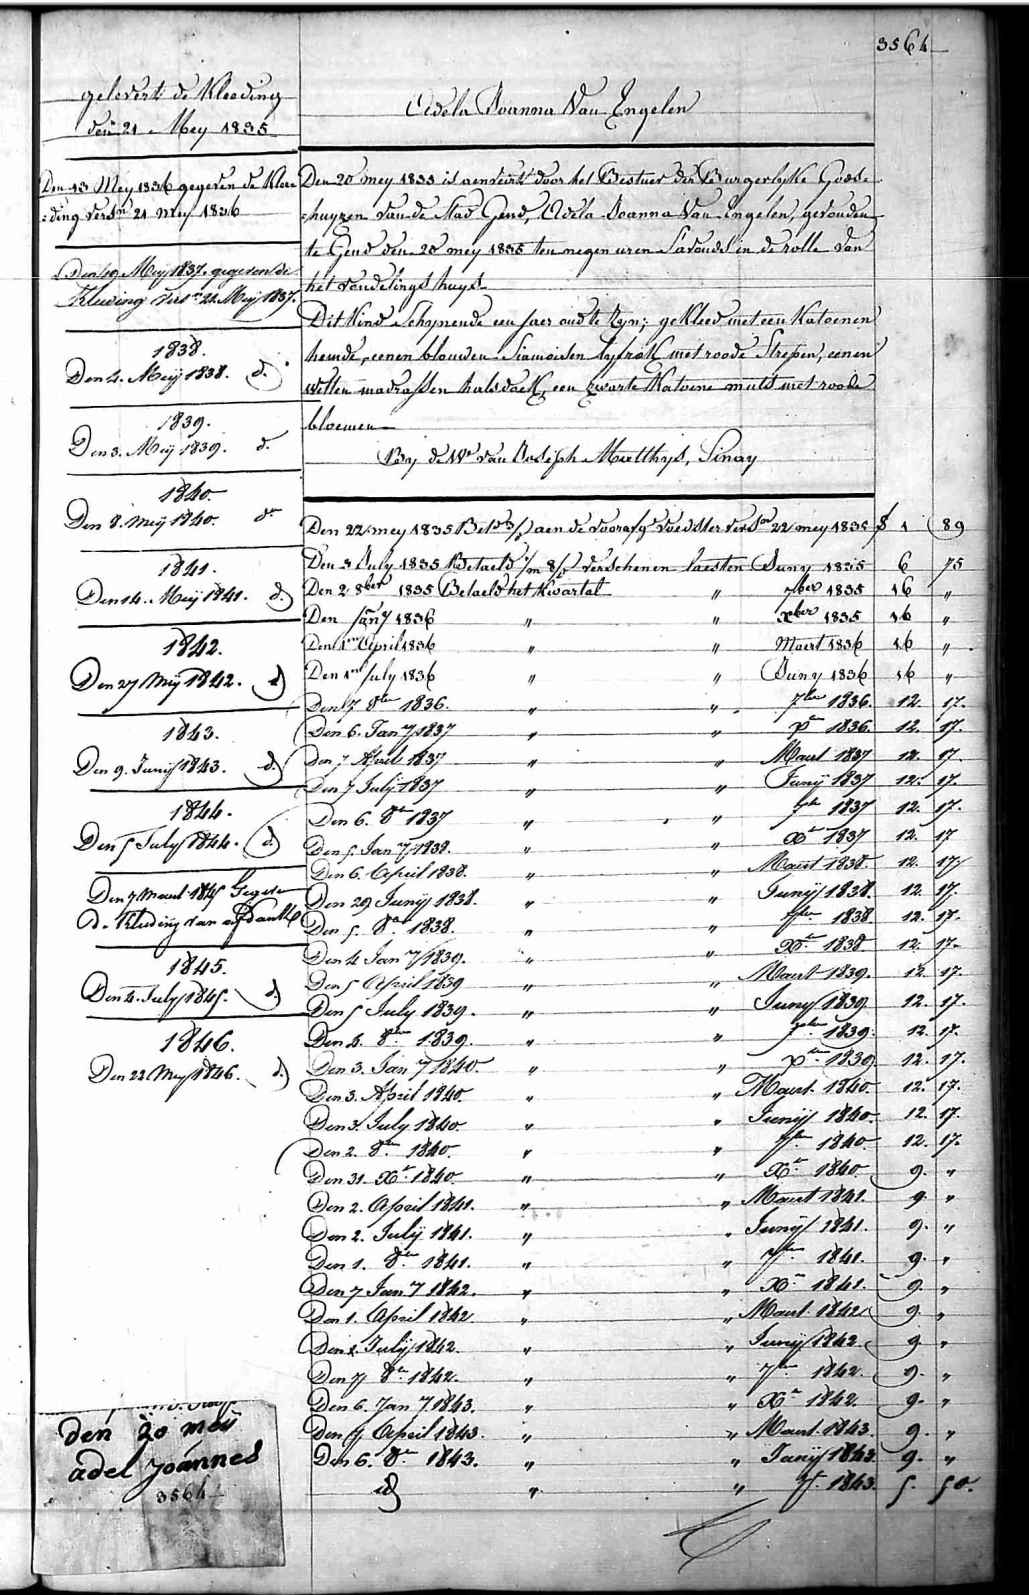 3564
gelevert de Kleeding
den 21 Mey 1835
Den 13 Mey 1836 gegeven de Klee=
=ding versn 21 mey 1836
Den 19 Meij 1837. gegeven de
Kleeding versn 22 Meij 1837.
1838.
Den 4. Meij 1838. d.
1839.
Den 3. Meij 1839. d.
1840.
Den 8. meij 1840. do
1841.
Den 14. Meij 1841. d.
1842.
Den 27 Mij 1842. d
1843.
Den 9. Junij 1843. d.
1844.
Den 5 July 1844. d.
Den 7 Maart 1845 Gegeven
d. Kleeding van
1845.
Den 4. July 1845. d.
1846.
Den 22 Mey 1846. d.
Den 20 mey
adel Joannes
3564
Adela Joanna Van Engelen
Den 20 mey 1835 is aenveert door het Bestuer der Burgerlyke Gods=
=huyzen van de Stad Gend, Adela Joanna Van Engelen, gevonden
te Gend den 20 mey 1835 ten negen uren s'avonds in de rolle van
het vondelings huys.
Dit Kind schynende een jaer oud te zyn; gekleed met een Katoenen
hemde, eenen blouwen Siamoisen lyfrok met roode strepen, eenen
witten madrassen halsdoek, een zwarte Katoene muts met roode
bloemen
By de We van Joseph Matthys, Sinay
Den 22 mey 1835 aen de voorafge voedster 22 mey 1835 f 1 89
Den 3 July 1835 Betaeld verschenen laesten Juny 1835 6 75
Den 2 8ber 1835 Betaeld het Kwartal " 7ber 1835 16 "
Den Jany 1836 " " Xber 1835 16 "
Den 1n April 1836 " " Maert 1836 16 "
Den 1n July 1836 " " Juny 1836 16 "
Den 7 8br 1836. " " 7ber 1836. 12. 17.
Den 6. Jany 1837 " " Xr 1836. 12. 17.
Den 7 April 1837 " " Maart 1837 12. 17.
Den 7 Julij 1837 " " Junij 1837 12. 17.
Den 6. 8br 1837 " " 7br 1837 12. 17.
Den 5 Jany 1838. " " Xr 1837 12. 17
Den 6. April 1838. " " Maart 1838. 12. 17
Den 29 Junij 1838. " " Junij 1838. 12. 17.
Den 5. 8br 1838. " " 7ber 1838. 12. 17.
Den 4 Jany 1839. " " Xr 1838 12. 17.
Den 5 April 1839 " " Maart 1839. 12. 17.
Den 5 July 1839. " " Juny 1839 12. 17.
Den 4. 8br 1839. " " 7ber 1839. 12. 17.
Den 3. Jany 1840. " " Xr 1839 12. 17.
Den 3. April 1840. " " Maart. 1840. 12. 17.
Den 3. July 1840. " " Junij 1840. 12. 17.
Den 2. 8br 1840. " " 7br 1840. 12. 17.
Den 31. Xr 1840. " " Xr 1840. 9. "
Den 2. April 1841. " " Maart 1841. 9. "
Den 2. Julij 1841. " " Junij 1841. 9. "
Den 1. 8br 1841. " " 7br 1841. 9. "
Den 7 Jany 1842. " " Xr 1841. 9. "
Den 1. April 1842 " " Maart 1842 9. "
Den 1 Julij 1842. " " Junij 1842. 9. "
Den 7 8br 1842. " " 7br 1842. 9. "
Den 6. Jany 1843. " " Xr 1842. 9. "
Den 7 April 1843. " " Maart 1843. 9. "
Den 6. 8br 1843. " " Junij 1843. 9. "
id " " 7r 1843. 5. 50.